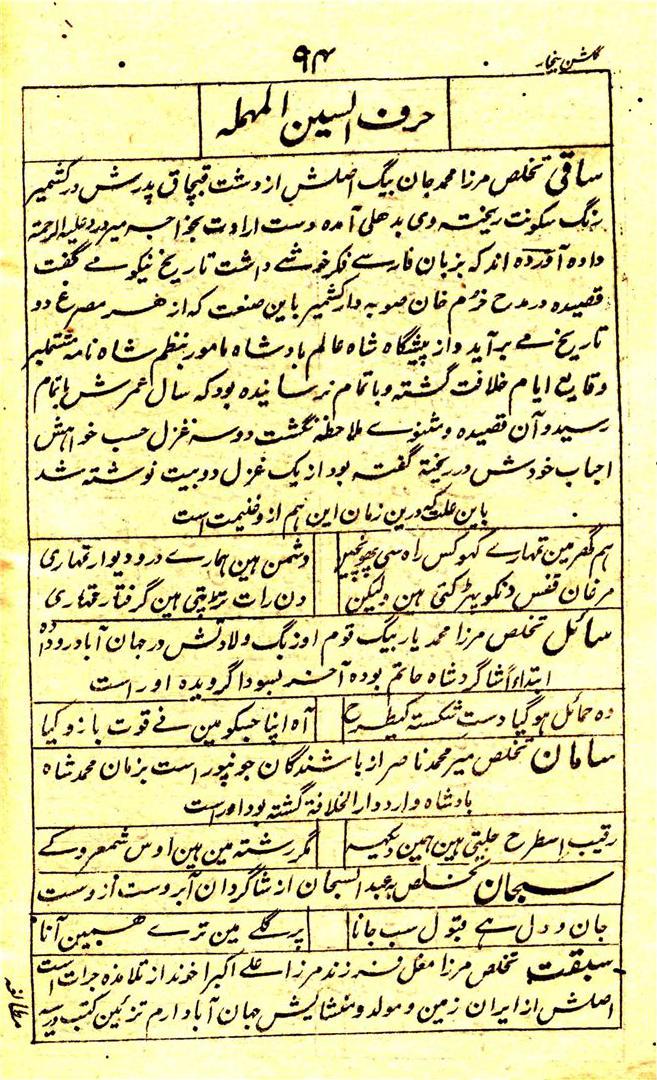 گلشن بیخار
۹۴
حرف السین المہملہ
ساقی تخلص مرزا محمد جان بیگ اصلش از دشت قبچاق پدرش در کشمیر
رنگ سکونت ریختہ وی بدهلی آمده دست ارادت بخواجہ میر درد علیہ الرحمۃ
داده آورده اند کہ بزبان فارسے فکر خوشے داشت تاریخ نیکو مے گفت
قصیده در مدح خرم خان صوبہ دار کشمیر باین صنعت کہ از هر مصرع دو
تاریخ مے برآید و از پیشگاه شاه عالم بادشاه مامور بنظم شاه نامہ مشتملبر
وقایع ایام خلافت گشتہ و باتمام نرسانیده بود کہ سال عمرش باتمام
رسید و آن قصیده و مثنوے ملاحظہ نگشت دو سہ غزل حسب خواهش
احباب خودش در ریختہ گفتہ بود از یک غزل دو بیت نوشتہ شد
باین علت کہ درین زمان این هم از و غنیمت است
هم گھر مین تمہارے کہو کس راه سی پہونچیں دشمن ہین ہمارے در و دیوار تمہاری
مرغان قفس دنکو پھڑکتی ہین ولیکن دن رات تڑپتی ہین گرفتار تمہاری
سائل تخلص مرزا محمد یار بیگ قوم اوزبگ ولادتش در جہان آباد رو داده
ابتداءً شاگرد شاه حاتم بوده آخر بسودا گرویده او راست
وه حمائل ہو گیا دستِ شکستہ کیطرح آه اپنا جسکو مین نے قوت بازو کیا
سامان تخلص میر محمد ناصر از باشندگان جونپور است بزمان محمد شاه
بادشاه وارد دار الخلافۃ گشتہ بود اوراست
رقیب اسطرح جلتی ہین ہمین دیکھہ مگر رشتہ مین ہین اوس شمعرو کے
سبحان تخلص بہ عبد السبحان از شاگردان آبروست ازوست
جان و دل ہے قبول سب جانا پر گلے مین ترے ہمین آنا
سبقت تخلص مرزا مغل فرزند مرزا علے اکبر اخوند از تلامذه جرات است
اصلش از ایران زمین و مولد و منشایش جہان آباد ارم تزئین کتب درسیہ
مطالعہ